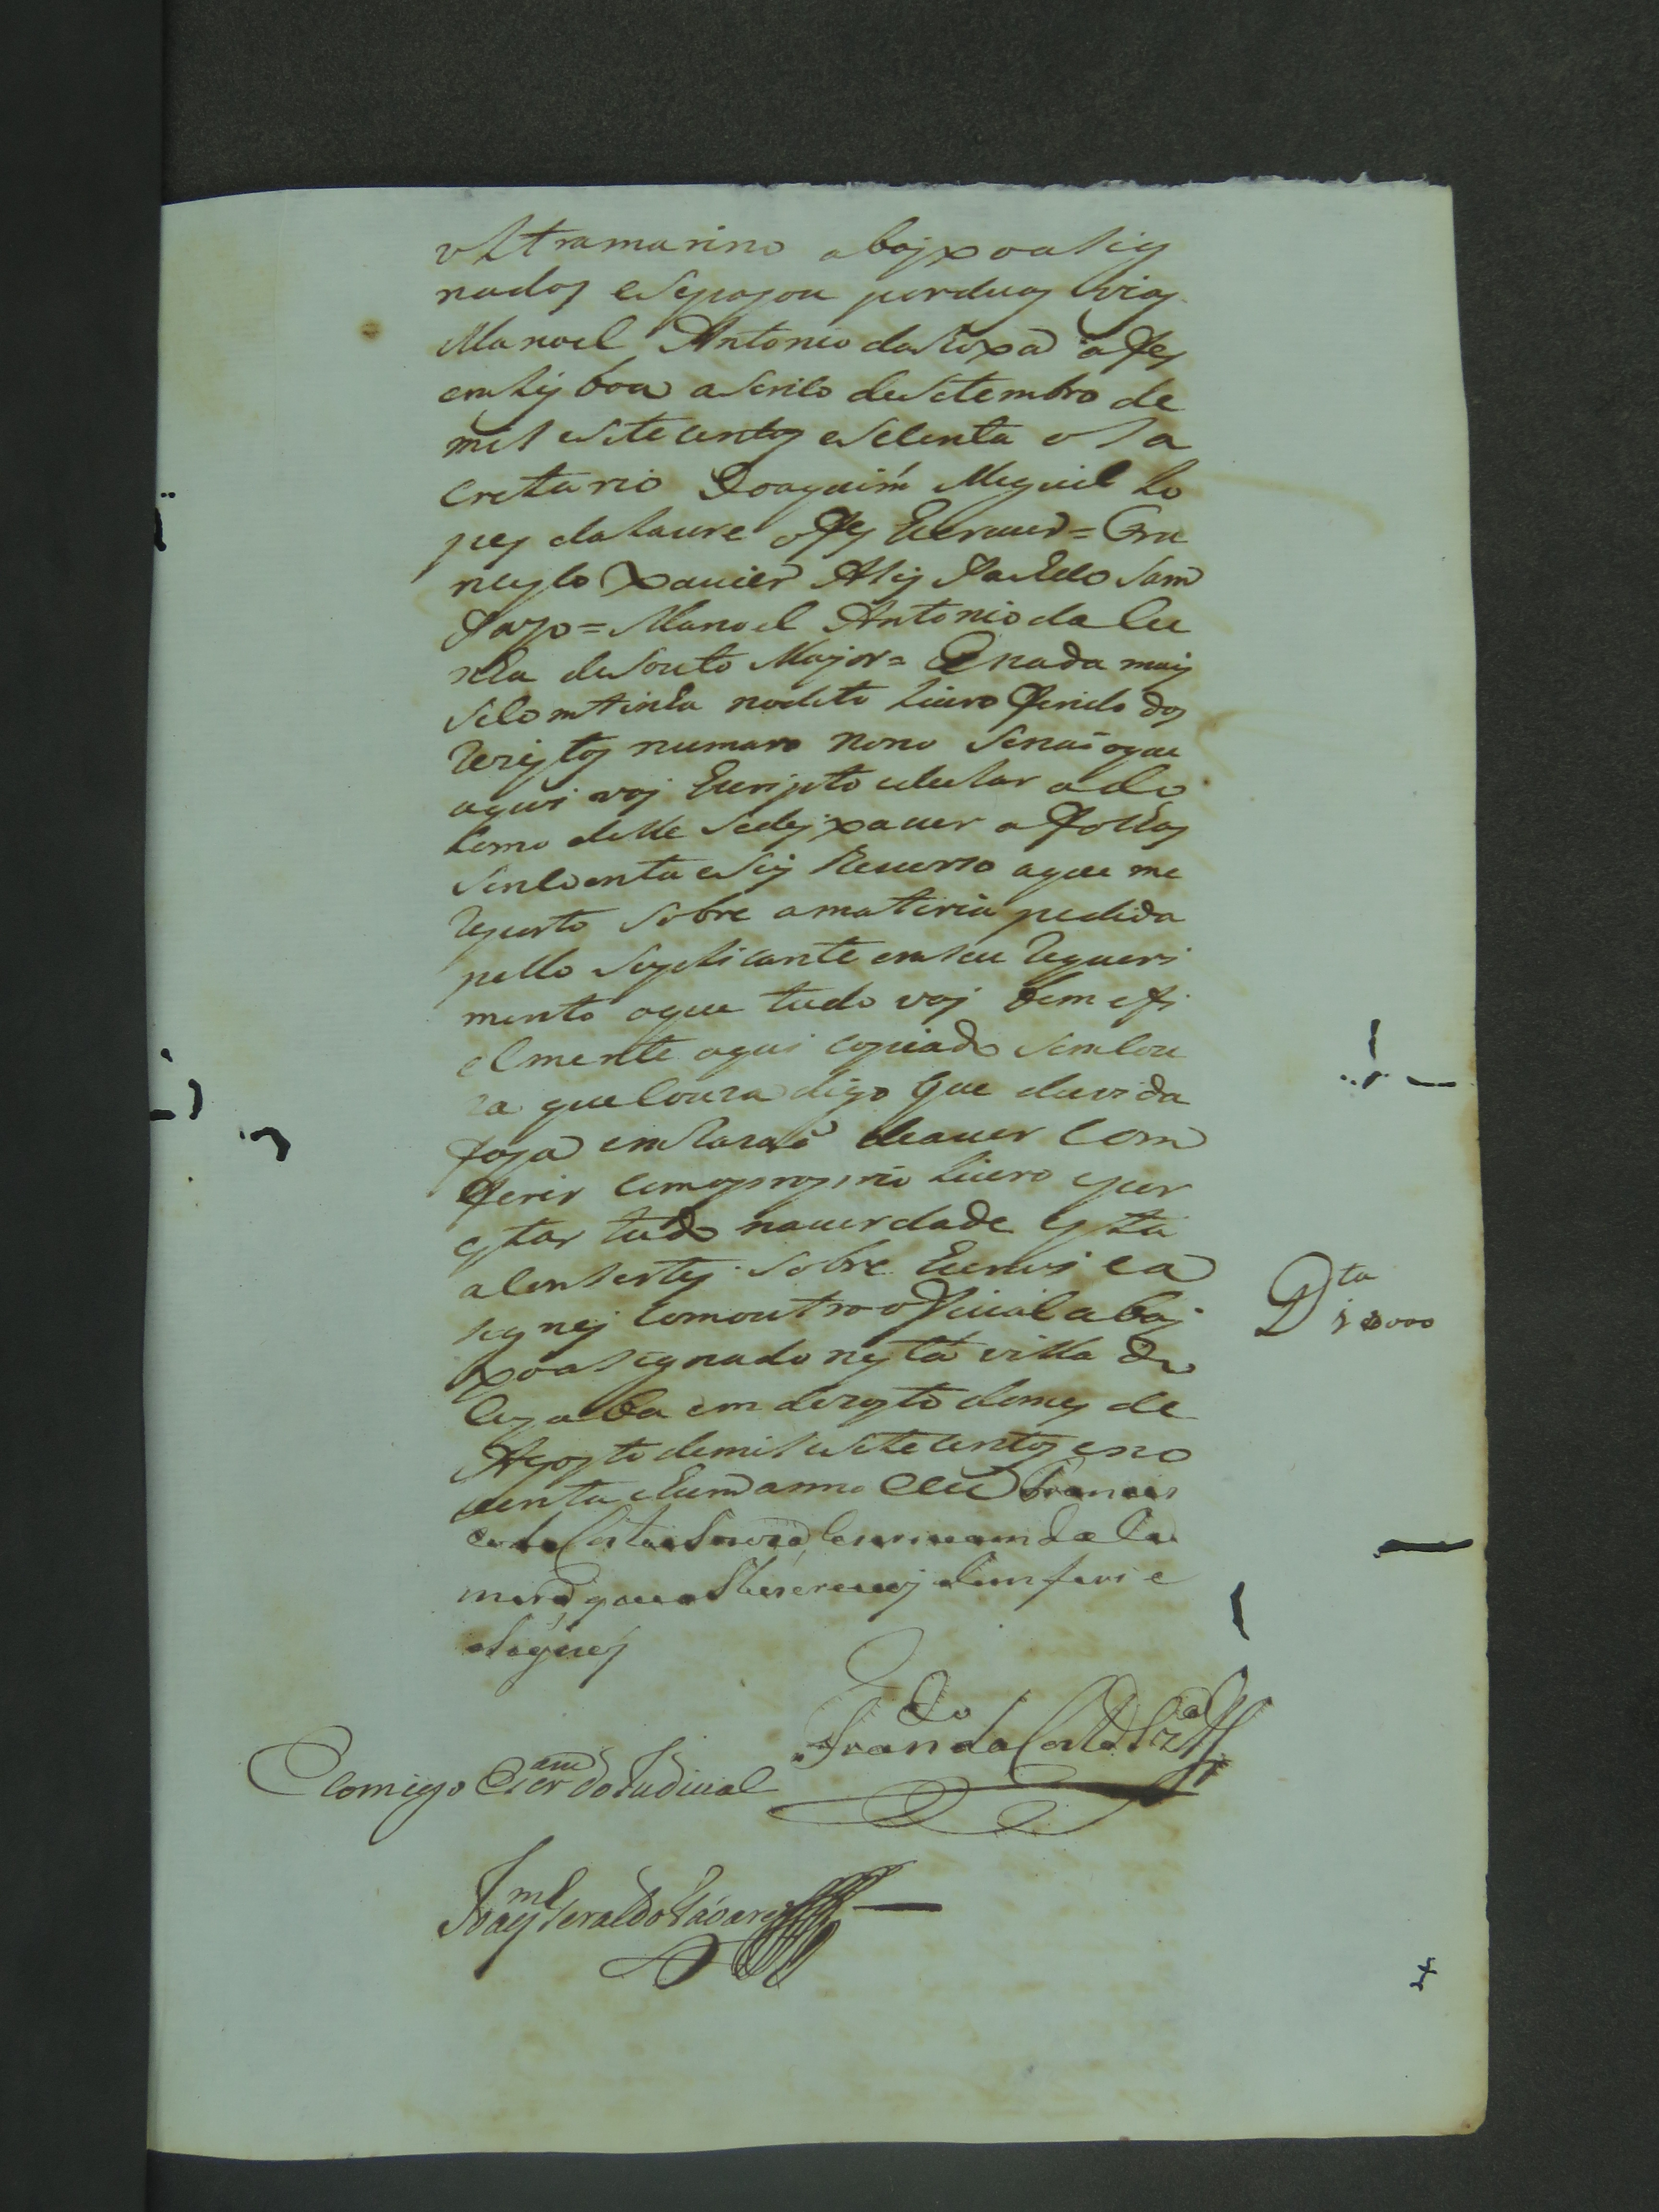 ultramarino abajxo asig
nados e Sepasou por duas vias
Manoel Antonio da Roxa a fes
em Lisboa a Sinco de Setembro de
mil e Sete centos e Secenta o Sa
cretario Joaquim Miguel Lo
pes da Laure o fes escrever =
Xavier Asis Pacheco Sam
Payo = Manoel Antonio da Cu
nha de Souto Major = E nada mais
Se Comtinha no dito Livro findo dos
Rezistos numaro nono Senaõ o que
aqui vaj escripto e declarado
Como delle Se dejxa ver a folhas
Sincoenta e Sis e verso a que me
Reporto Sobre a materia pedida
pello Suplicante em seu Requeri
mento o que tudo vaj bem e fi
elmente aqui copiado Sem Cou
za que Couza digo que duvida
fasa em razaõ de a ver Com
ferir Com o proprio Livro e por
estar tudo na verdade esta
a Consertej Sobre Escrevi e a
signej Com outro oficial abaj
xo asignado nesta villa do
Cuyaba em dezoyto do mes de
Agosto de mil e Sete centos e no
uenta e hum annos Eu Francis
co da Costa escrivam da Ca
mera que o Sobescrevj Comferi e
asignej
Dta
1$000
Fran.co da Costa
E Comigo Escr.am do Judicial
Joaq.m Geraldo Tavares